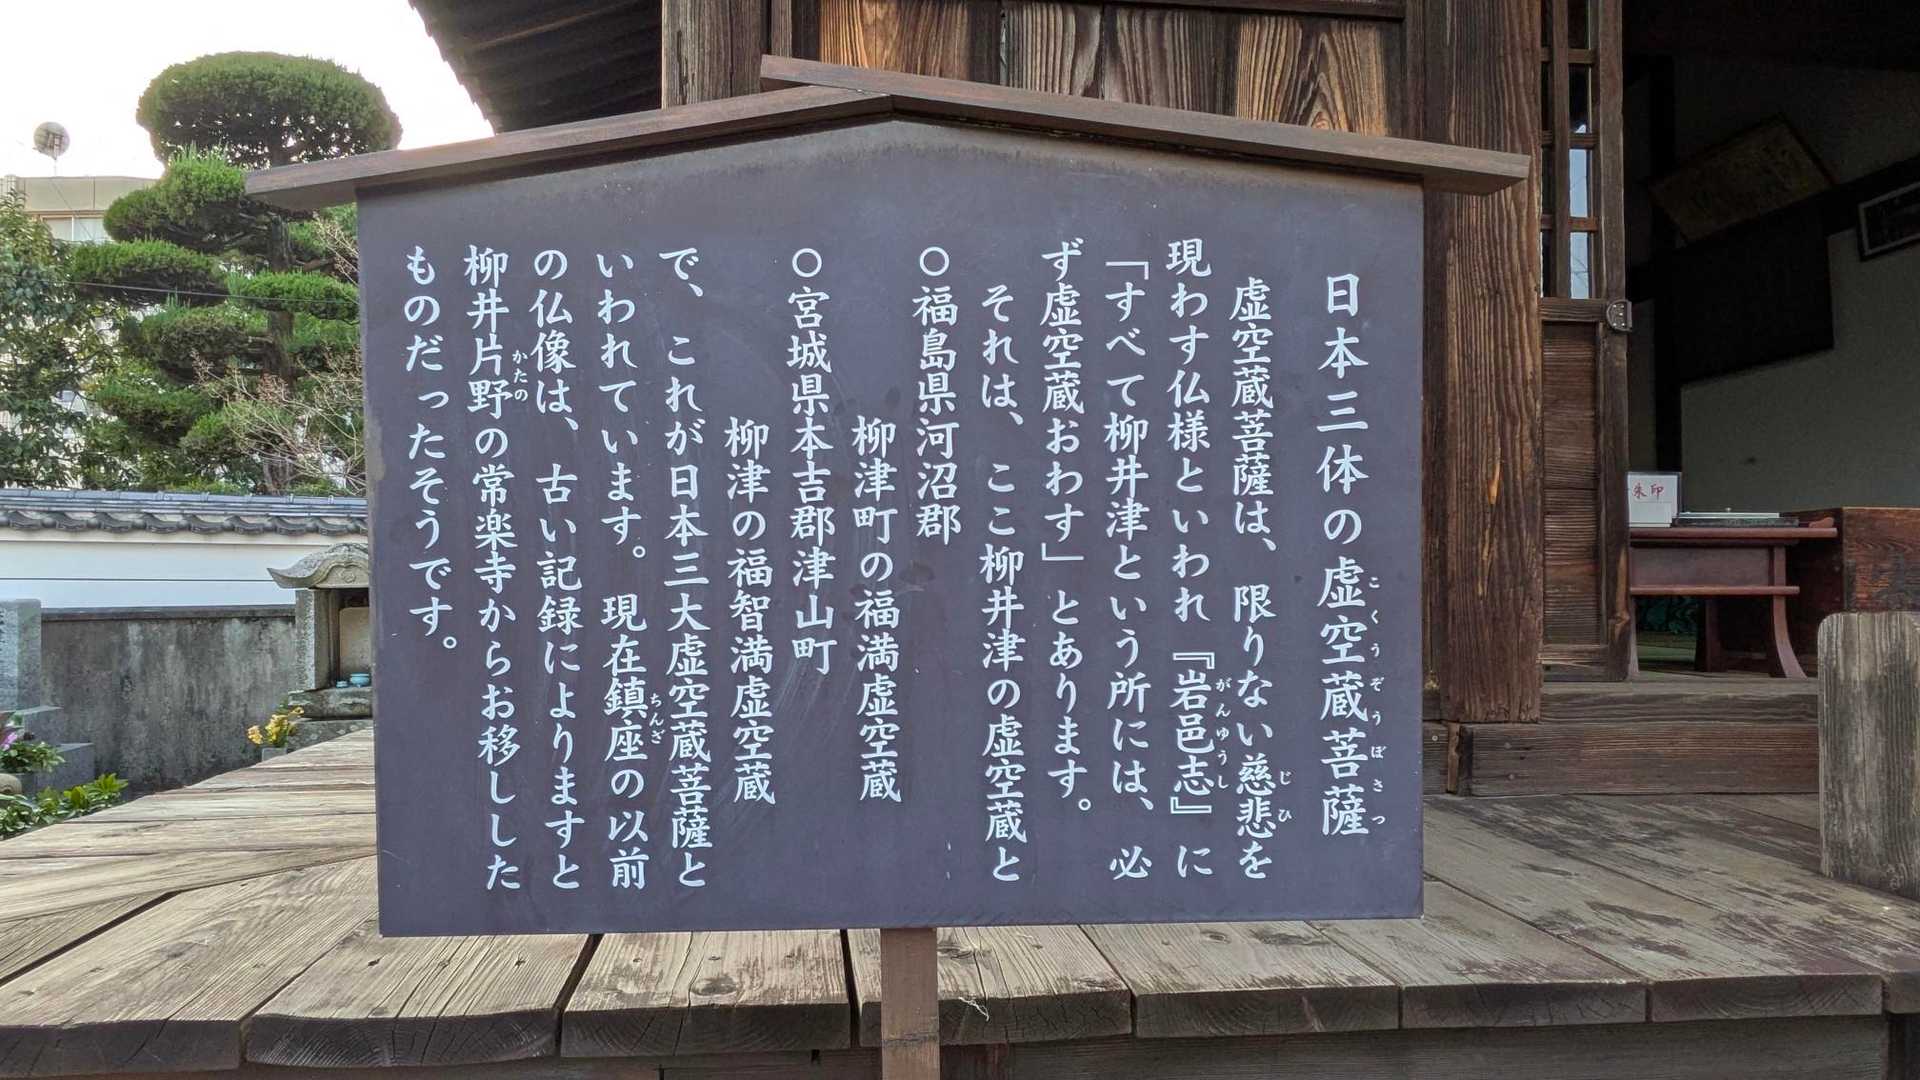 日本三体の虚空蔵菩薩
こくうぞうぼさつ
虚空蔵菩薩は、限りない慈悲を
じひ
現わす仏様といわれ『岩邑志』に
がんゆうし
「すべて柳井津という所には、必
ず虚空蔵おわす」とあります。
それは、ここ柳井津の虚空蔵と
○福島県河沼郡
柳津町の福満虚空蔵
○宮城県本吉郡津山町
柳津の福智満虚空蔵
で、これが日本三大虚空蔵菩薩と
いわれています。現在鎮座の以前
ちんざ
の仏像は、古い記録によりますと
柳井片野の常楽寺からお移しした
かたの
ものだったそうです。
朱印